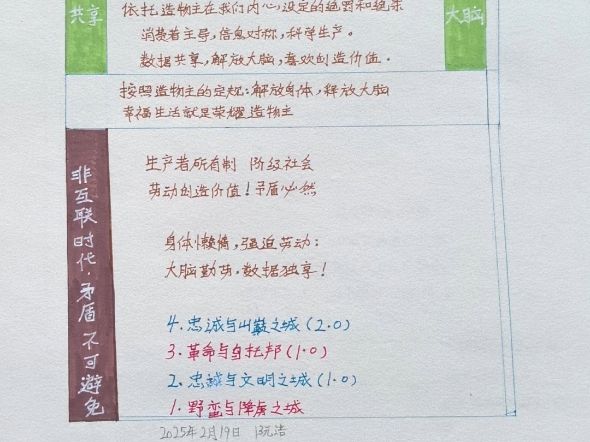 共享
大脑
依托造物主在我们内心,设定的
消费者主导,信息对称,科学生产。
数据共享,解放大脑,喜欢创造价值.
按照造物主的定规:解放身体,释放大脑
幸福生活就是荣耀造物主
非互联时代·矛盾不可避免
生产者所有制 阶级社会
劳动创造价值!矛盾必然
身体懒惰,强迫劳动:
大脑勤劳,数据独享!
4.忠诚与山巅之城(2.0)
3.革命与乌托邦(1.0)
2.忠诚与文明之城(1.0)
1.野蛮与降虏之城
2025年2月19日 阮浩